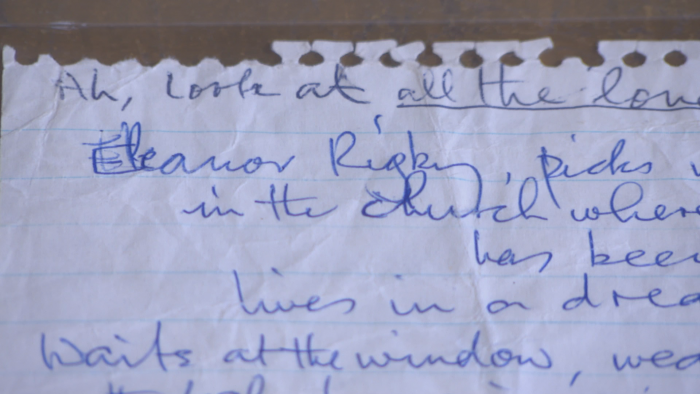 Ah, look at all the lon
Eleanor Rigby, picks
in the church wher
has been
lives in a drea
Waits at the window, wea